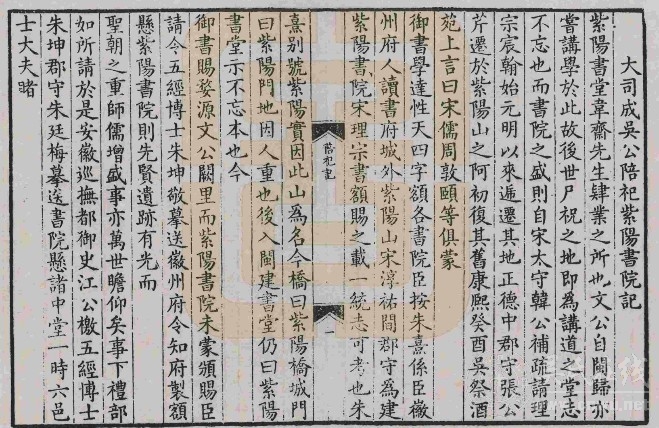 大司成吳公陪祀紫陽書院記
紫陽書堂韋齋先生肄業之所也文公自閩歸亦
嘗講學於此故後世尸祝之地即為講道之堂志
不忘也而書院之盛則自宋太守韓公補疏請理
宗宸翰始元明以來遞遷其地正德中郡守張公
芹遷於紫陽山之阿初復其舊康熙癸酉吳祭酒
苑上言曰宋儒周敦頤等俱蒙
御書學達性天四字額各書院臣按朱熹係臣徽
州府人讀書府城外紫陽山宋淳祐間郡守為建
紫陽書院宋理宗書額賜之載一統志可考也朱
熹別號紫陽實因此山為名今橋曰紫陽橋城門
曰紫陽門地因人重也後入閩建書堂仍曰紫陽
書堂示不忘本也今
御書賜婺源文公闕里而紫陽書院未蒙頒賜臣
請令五經博士朱坤敬摹送徽州府令知府製額
懸紫陽書院則先賢遺跡有光而
聖朝之重師儒增盛事亦萬世瞻仰矣事下禮部
如所請於是安徽巡撫都御史江公檄五經博士
朱坤郡守朱廷梅摹送書院懸諸中堂一時六邑
士大夫睹
陪祀記
一